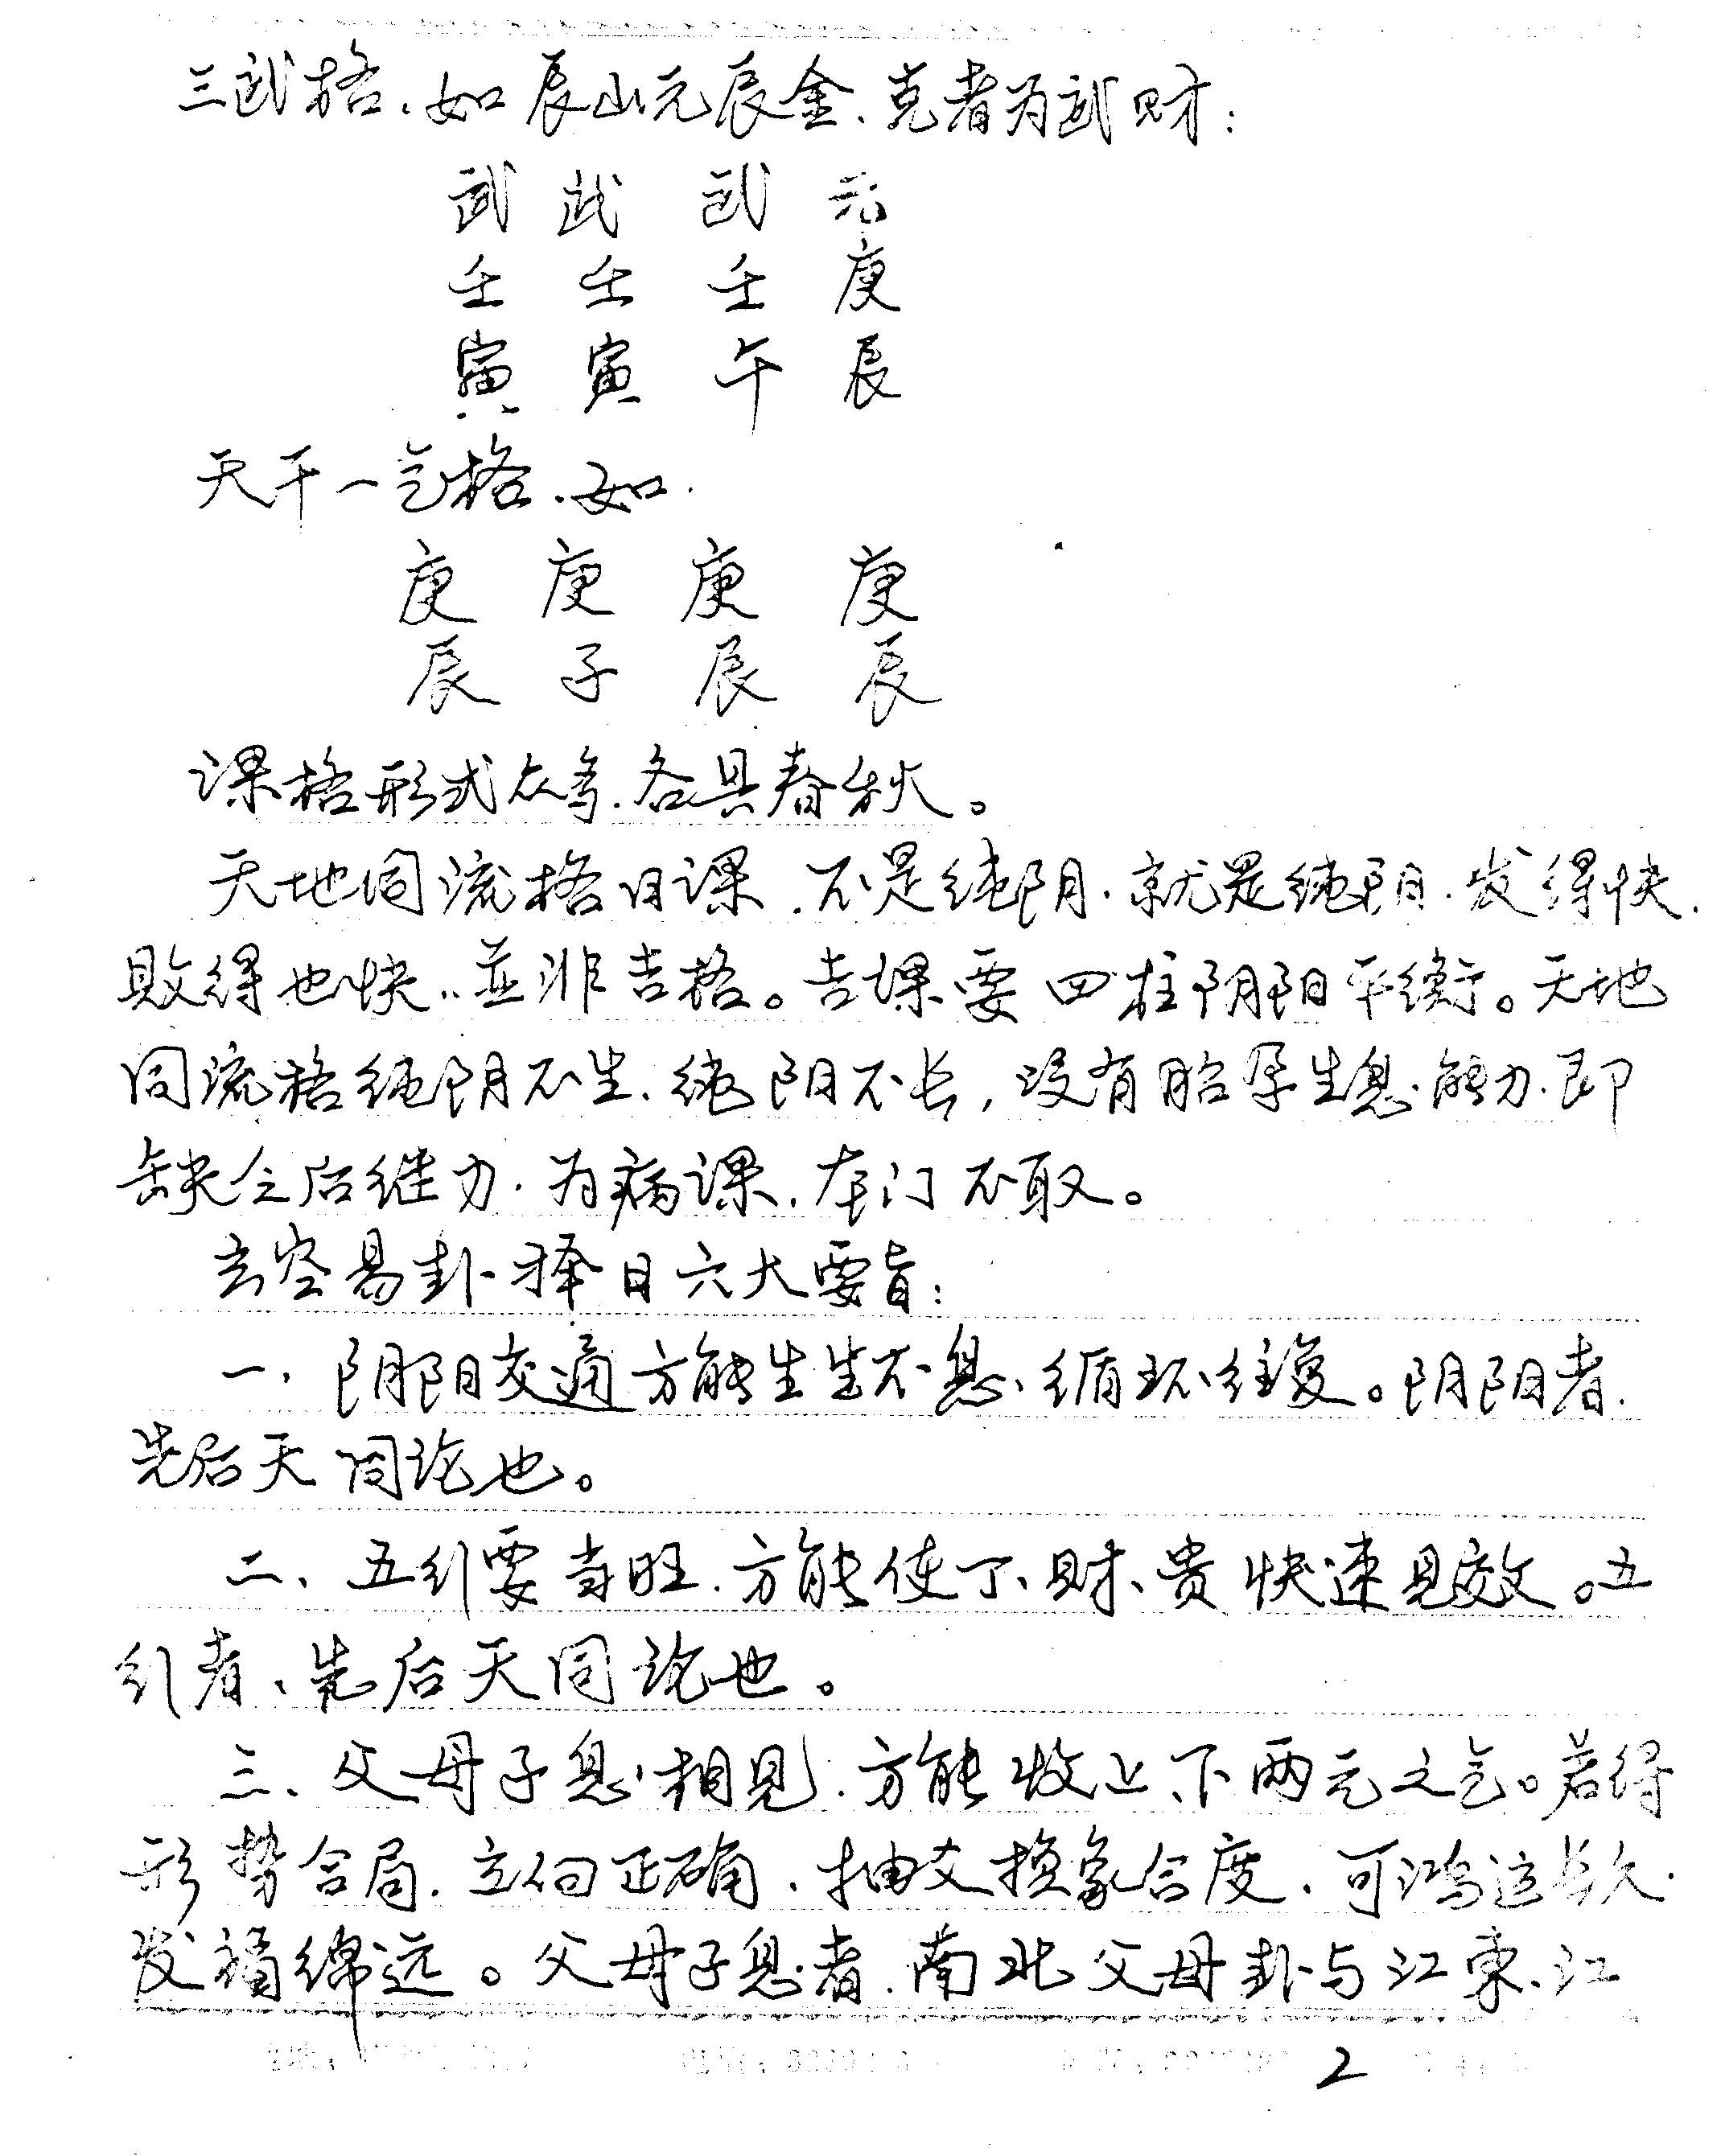 三武格、如辰山元辰金、克者为武财：
武 武 武 元
壬 壬 壬 庚
寅 寅 午 辰
天干一气格、如
庚 庚 庚 庚
辰 子 辰 辰
课格形式众多、各具春秋。
天地同流格日课、不是纯阴、就是纯阳、发得快、
败得也快、並非吉格。吉课要四柱阴阳平衡。天地
同流格纯阴不生、纯阳不长，没有胎孕生息能力、即
缺乏后继力、为病课、本门不取。
玄空易卦择日六大要旨：
一、阴阳交通方能生生不息、循环往复。阴阳者、
先后天同论也。
二、五行要当旺、方能使丁、财、贵快速见效。五
行者、先后天同论也。
三、父母子息相见、方能收上、下两元之气。若得
形势合局、立向正确、抽爻换象合度、可鸿运长久、
发福绵远。父母子息者、南北父母卦与江东、江
2